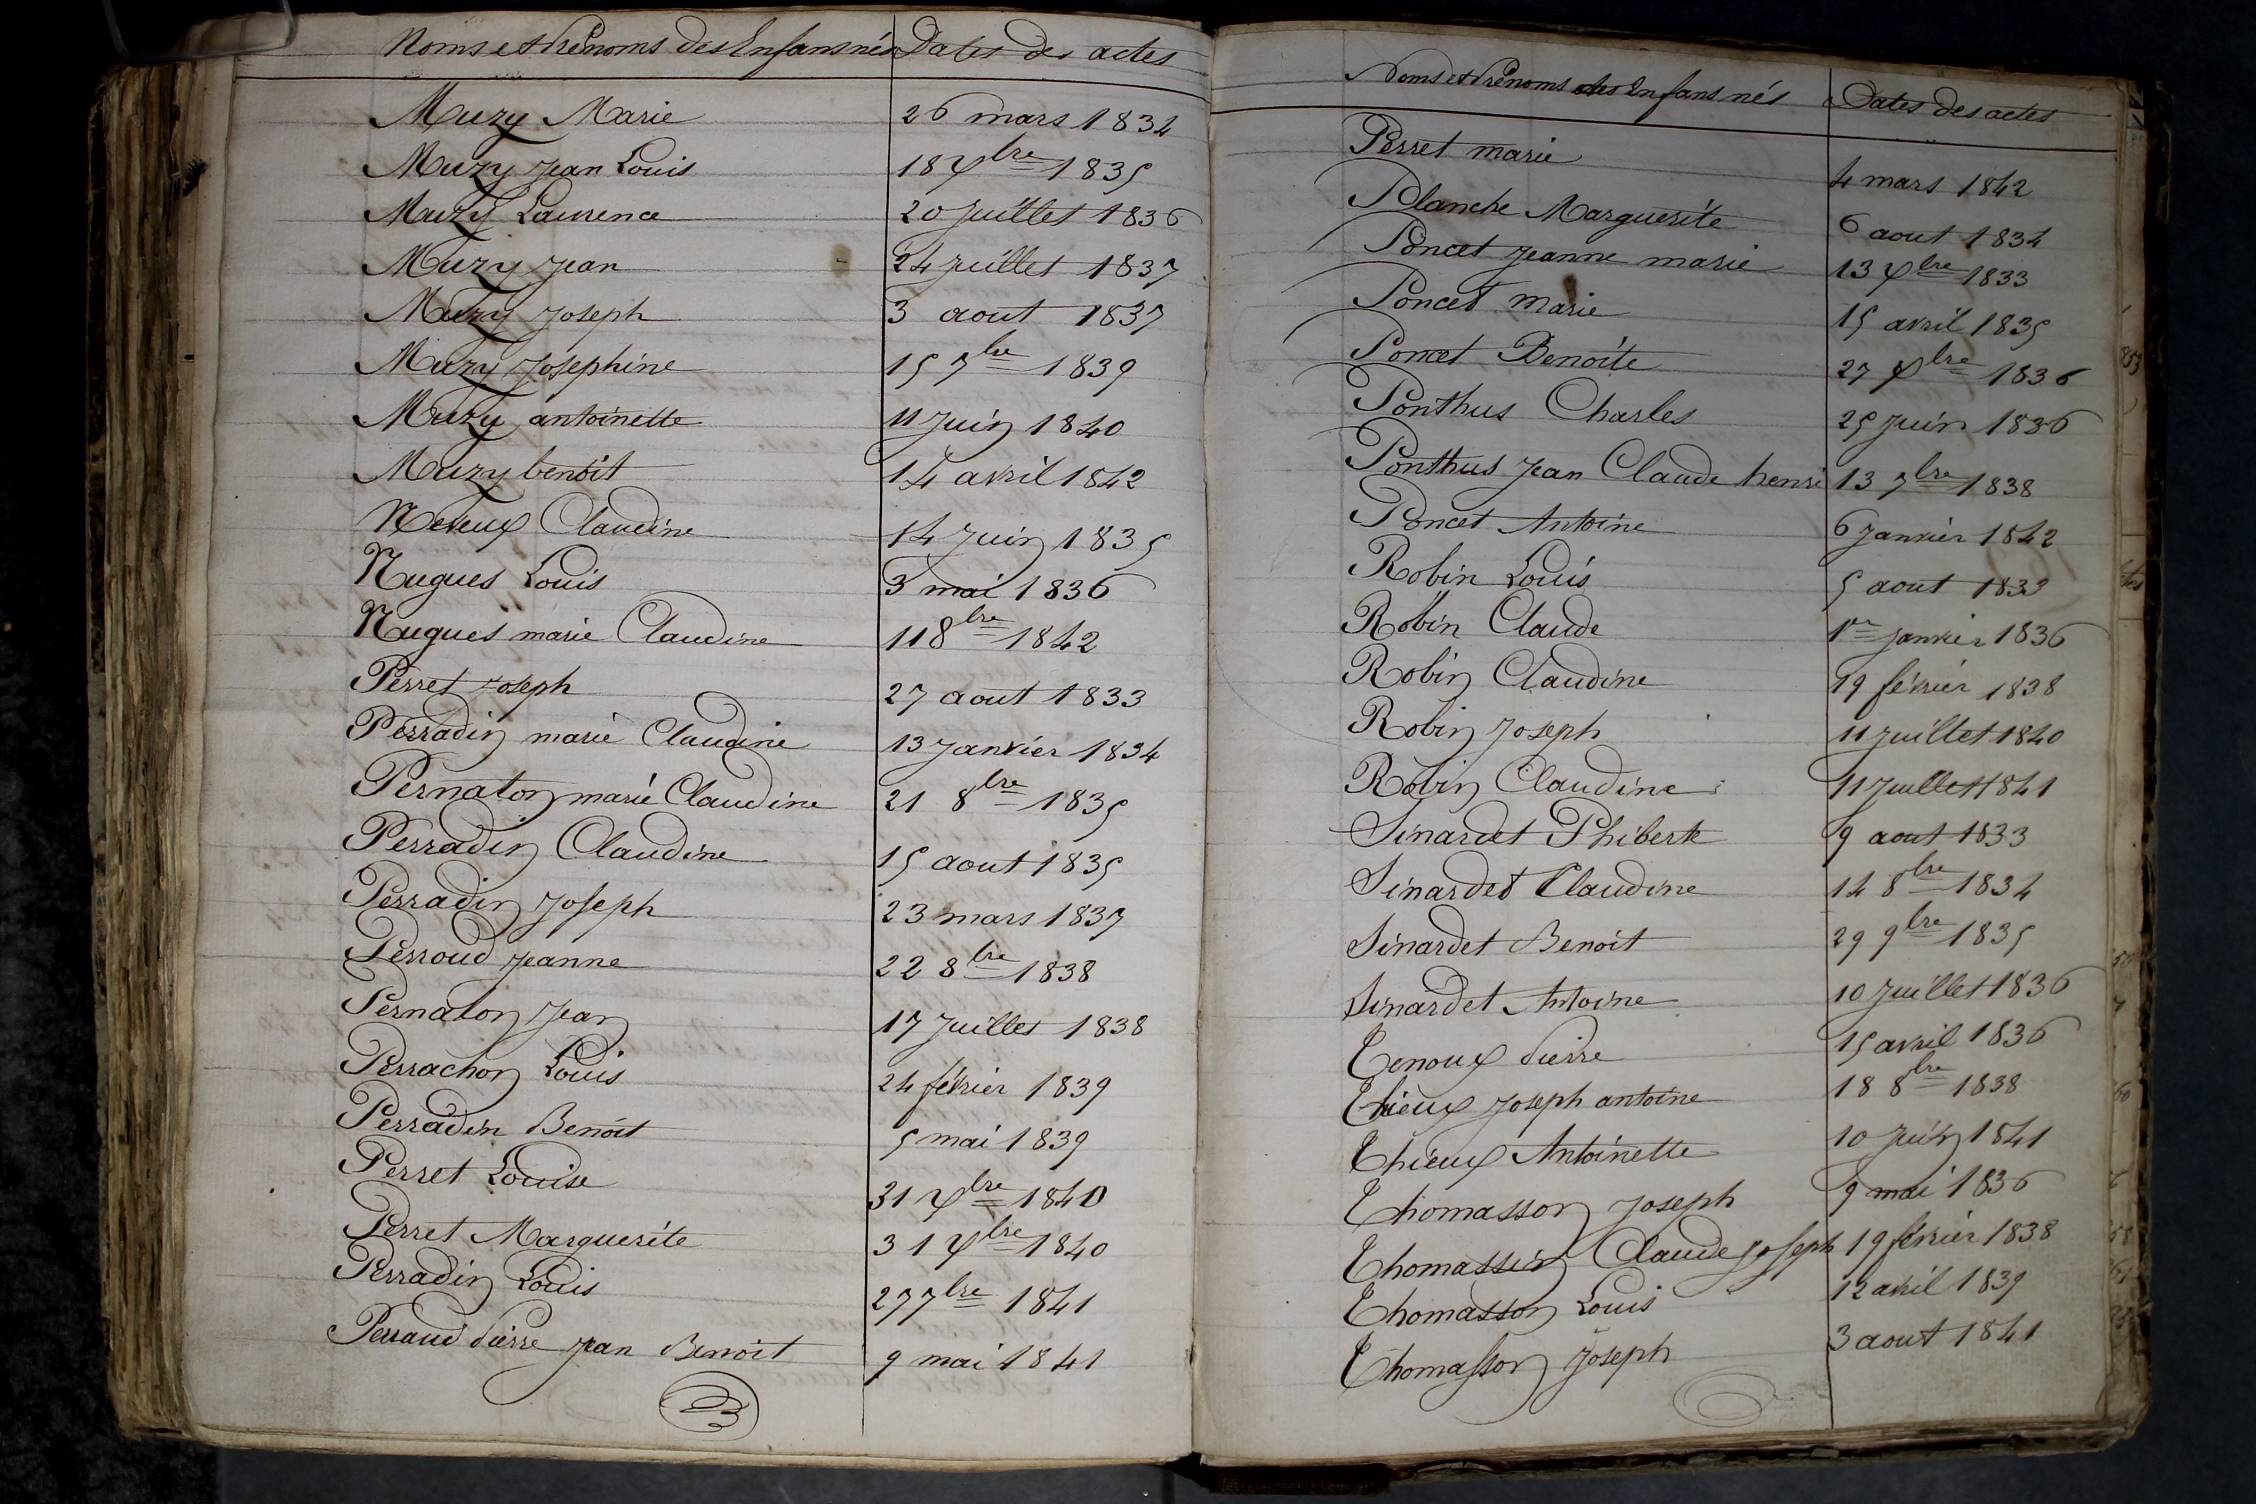 Noms et Prénoms des Enfans nés Dates des actes
Muzy Marie 26 mars 1834
Muzy Jean Louis 18 Xbre 1835
Muzy Laurence 20 Juillet 1836
Muzy Jean 24 Juillet 1837
Muzy Joseph 3 aout 1837
Muzy Josephine 15 7bre 1839
Muzy antoinette 11 Juin 1840
Muzy benoit 14 avril 1842
Neveux Claudine 14 Juin 1835
Nugues Louis 3 mai 1836
Nugues marie Claudine 11 8bre 1842
Perret Joseph 27 aout 1833
Perradin marie Claudine 13 Janvier 1834
Pernaton marie Claudine 21 8bre 1835
Perradin Claudine 15 aout 1835
Perradin Joseph 23 mars 1837
Perroud Jeanne 22 8bre 1838
Pernaton Jean 17 Juillet 1838
Perrachon Louis 24 février 1839
Perradin Benoit 5 mai 1839
Perret Louise 31 Xbre 1840
Perret Marguerite 31 Xbre 1840
Perradin Louis 27 7bre 1841
Perraud Pierre Jean Benoit 9 mai 1841
Noms et Prénoms des Enfans nés Dates des actes
Perret marie 4 mars 1842
Planche Marguerite 6 aout 1834
Poncet Jeanne marie 13 Xbre 1833
Poncet Marie 15 avril 1835
Poncet Benoite 27 Xbre 1836
Ponthus Charles 25 Juin 1836
Ponthus Jean Claude henri 13 7bre 1838
Poncet Antoine 6 Janvier 1842
Robin Louis 5 aout 1833
Robin Claude 1er janvier 1836
Robin Claudine 19 février 1838
Robin Joseph 11 Juillet 1840
Robin Claudine 11 Juillet 1841
Sinardet Phiberte 9 aout 1833
Sinardet Claudine 14 8bre 1834
Sinardet Benoit 29 9bre 1835
Sinardet Antoine 10 Juillet 1836
Tenoux Pierre 15 avril 1836
Thieux Joseph antoine 18 8bre 1838
Thieux Antoinette 10 Juin 1841
Thomasson Joseph 9 mai 1836
Thomassin Claude Joseph 19 février 1838
Thomasson Louis 12 avril 1839
Thomasson Joseph 3 aout 1841